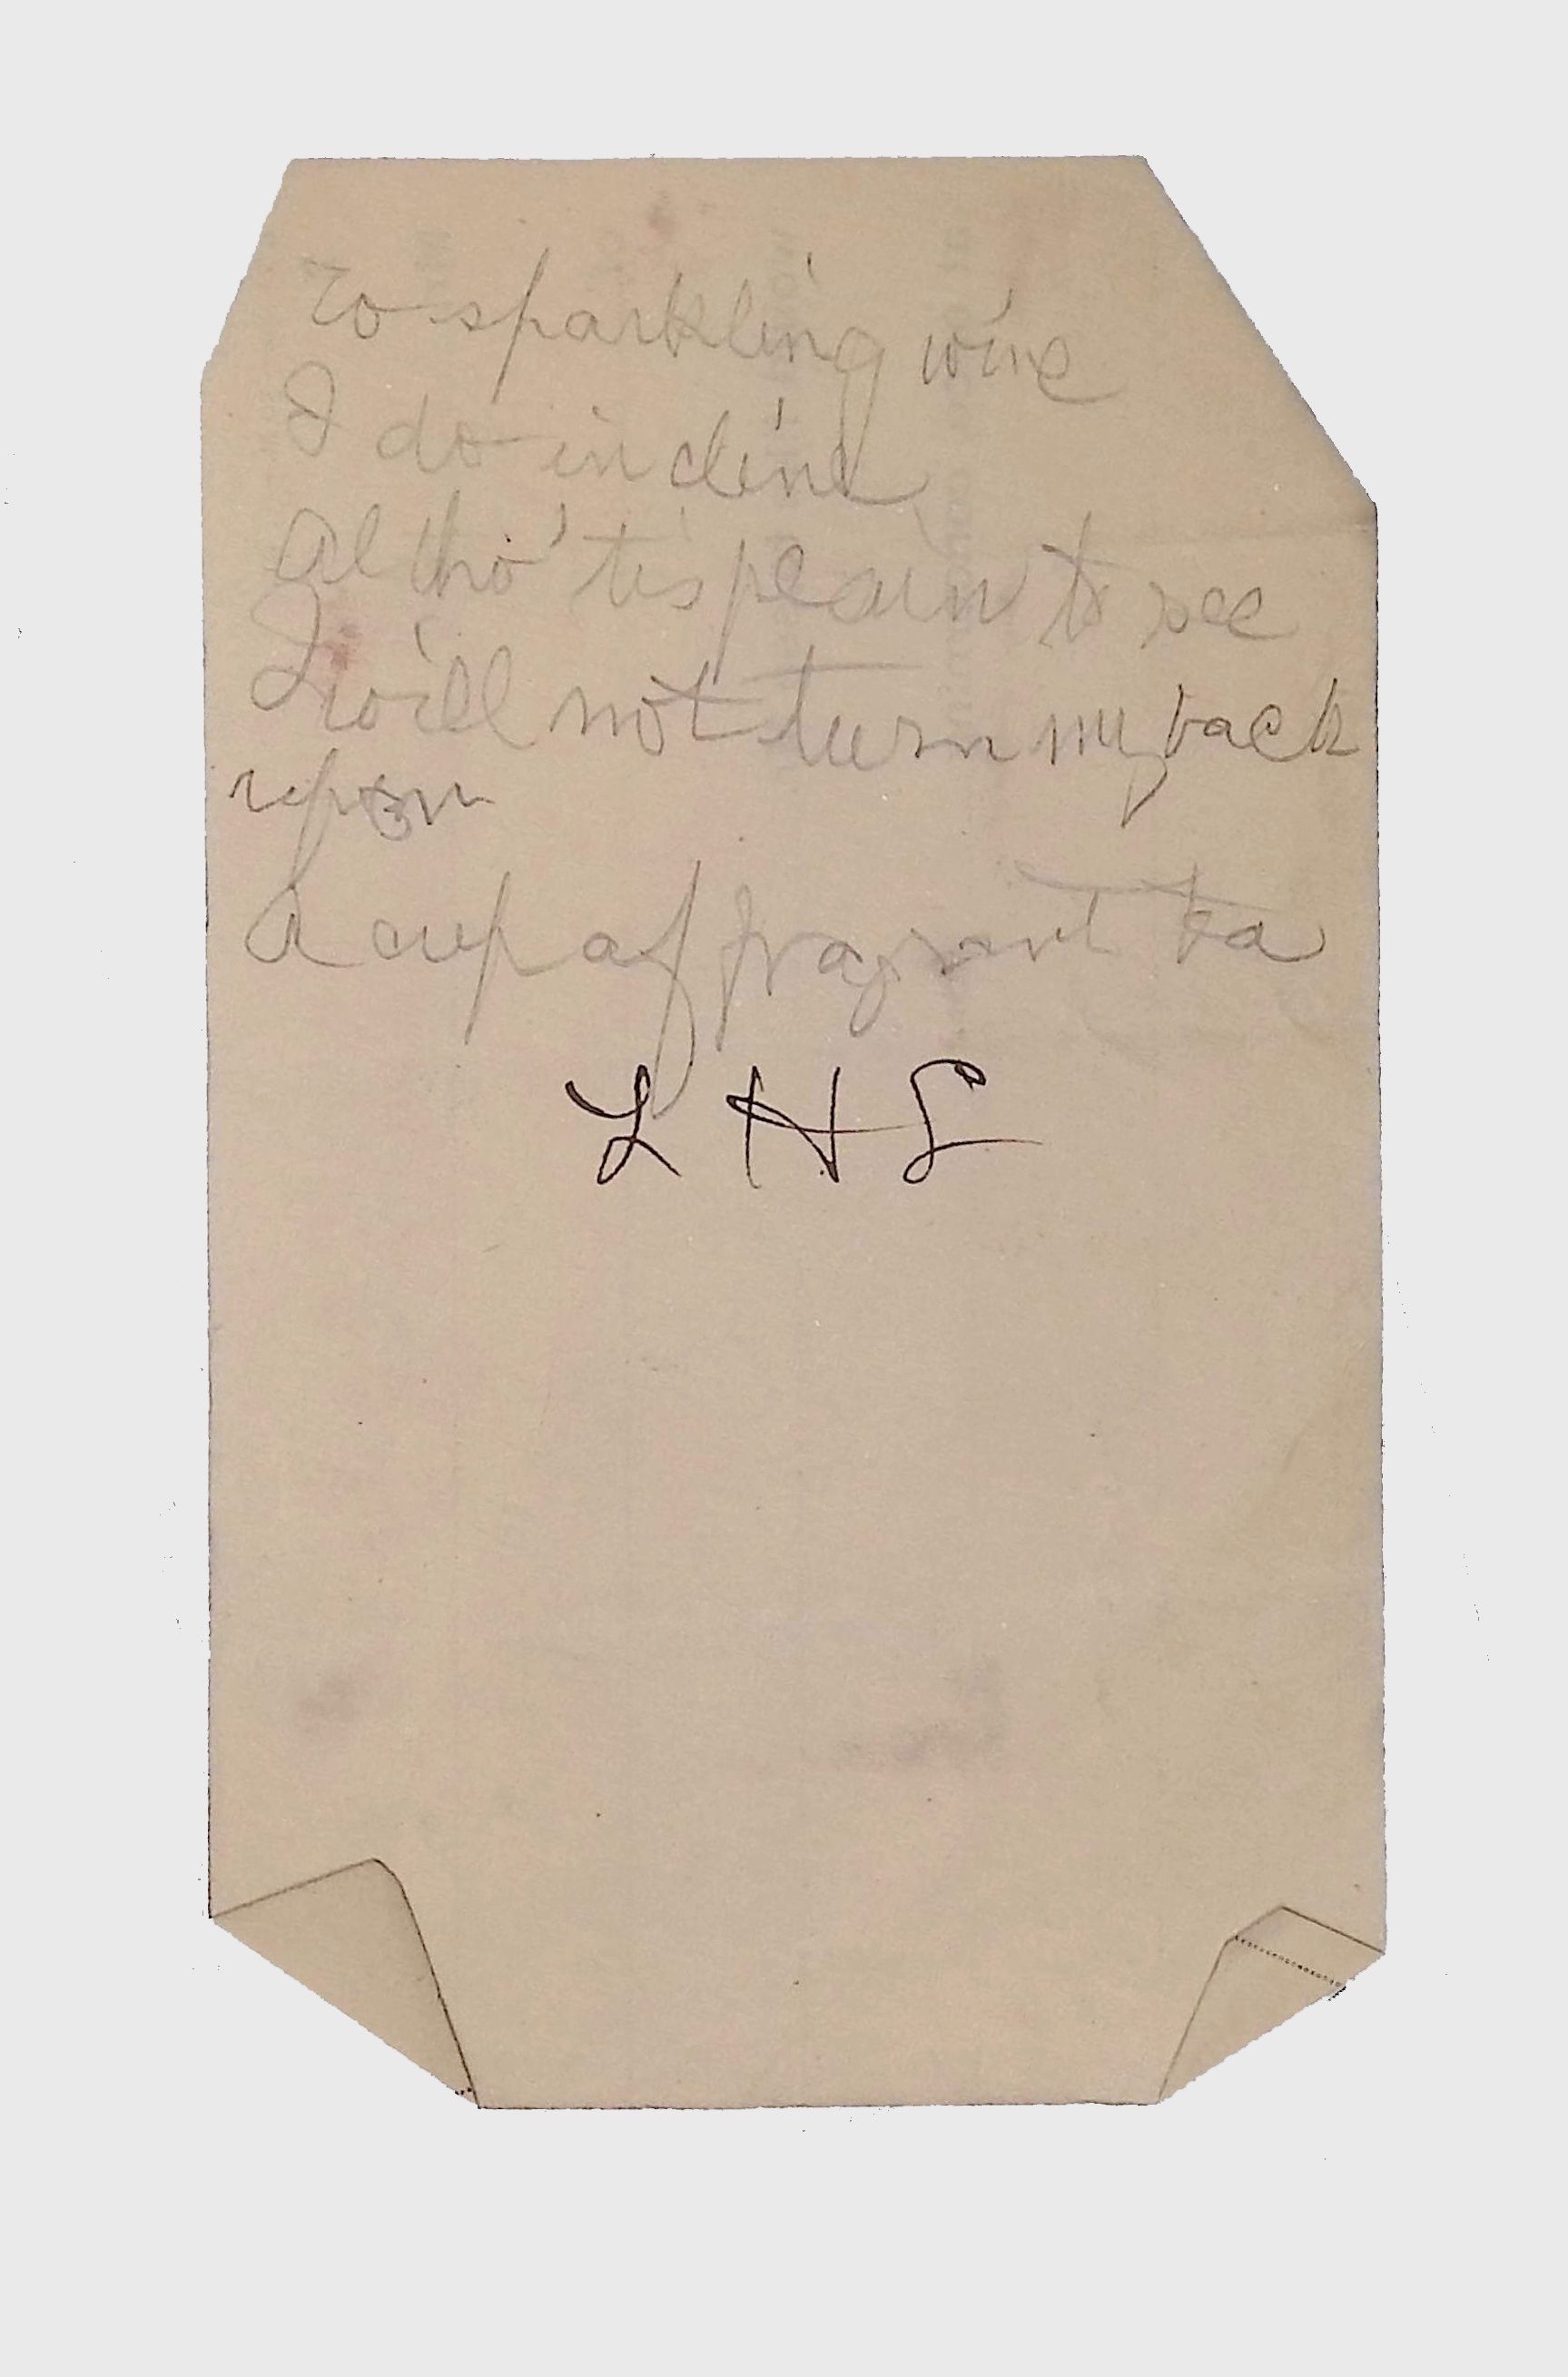 To sparkling wine
I do incline
Altho' 'tis plain to see
I will not turn my back
upon
A cup of fragrant tea
L H S